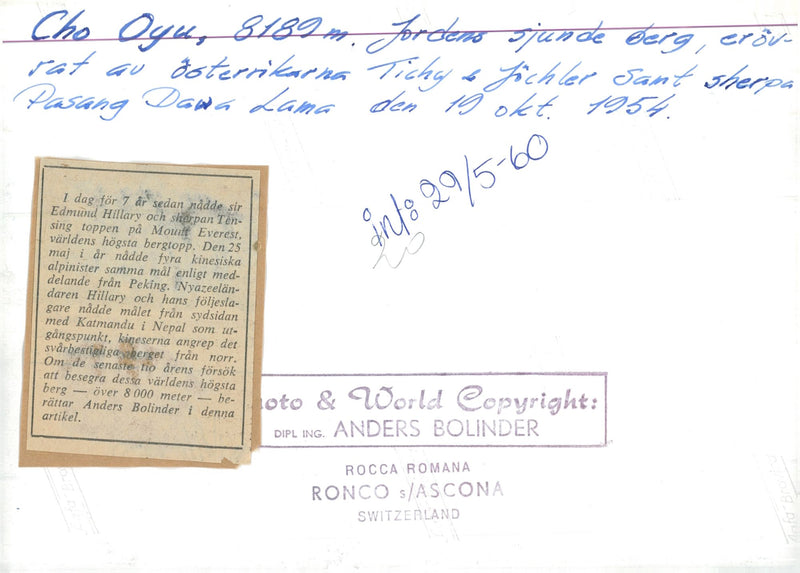 Cho Oyu, 8189 m. Jordens sjunde berg, eröv-
rat av österrikarna Tichy & Jöchler samt sherpa
Pasang Dawa Lama den 19 okt. 1954.
inf: 29/5-60
I dag för 7 år sedan nådde sir
Edmund Hillary och sherpan Ten-
sing toppen på Mount Everest,
världens högsta bergtopp. Den 25
maj i år nådde fyra kinesiska
alpinister samma mål enligt med-
delande från Peking. Nyazeelän-
daren Hillary och hans följesla-
gare nådde målet från sydsidan
med Katmandu i Nepal som ut-
gångspunkt, kineserna angrep det
svårbestigliga berget från norr.
Om de senaste tio årens försök
att besegra dessa världens högsta
berg — över 8 000 meter — be-
rättar Anders Bolinder i denna
artikel.
oto & World Copyright:
DIPL ING. ANDERS BOLINDER
ROCCA ROMANA
RONCO s/ASCONA
SWITZERLAND